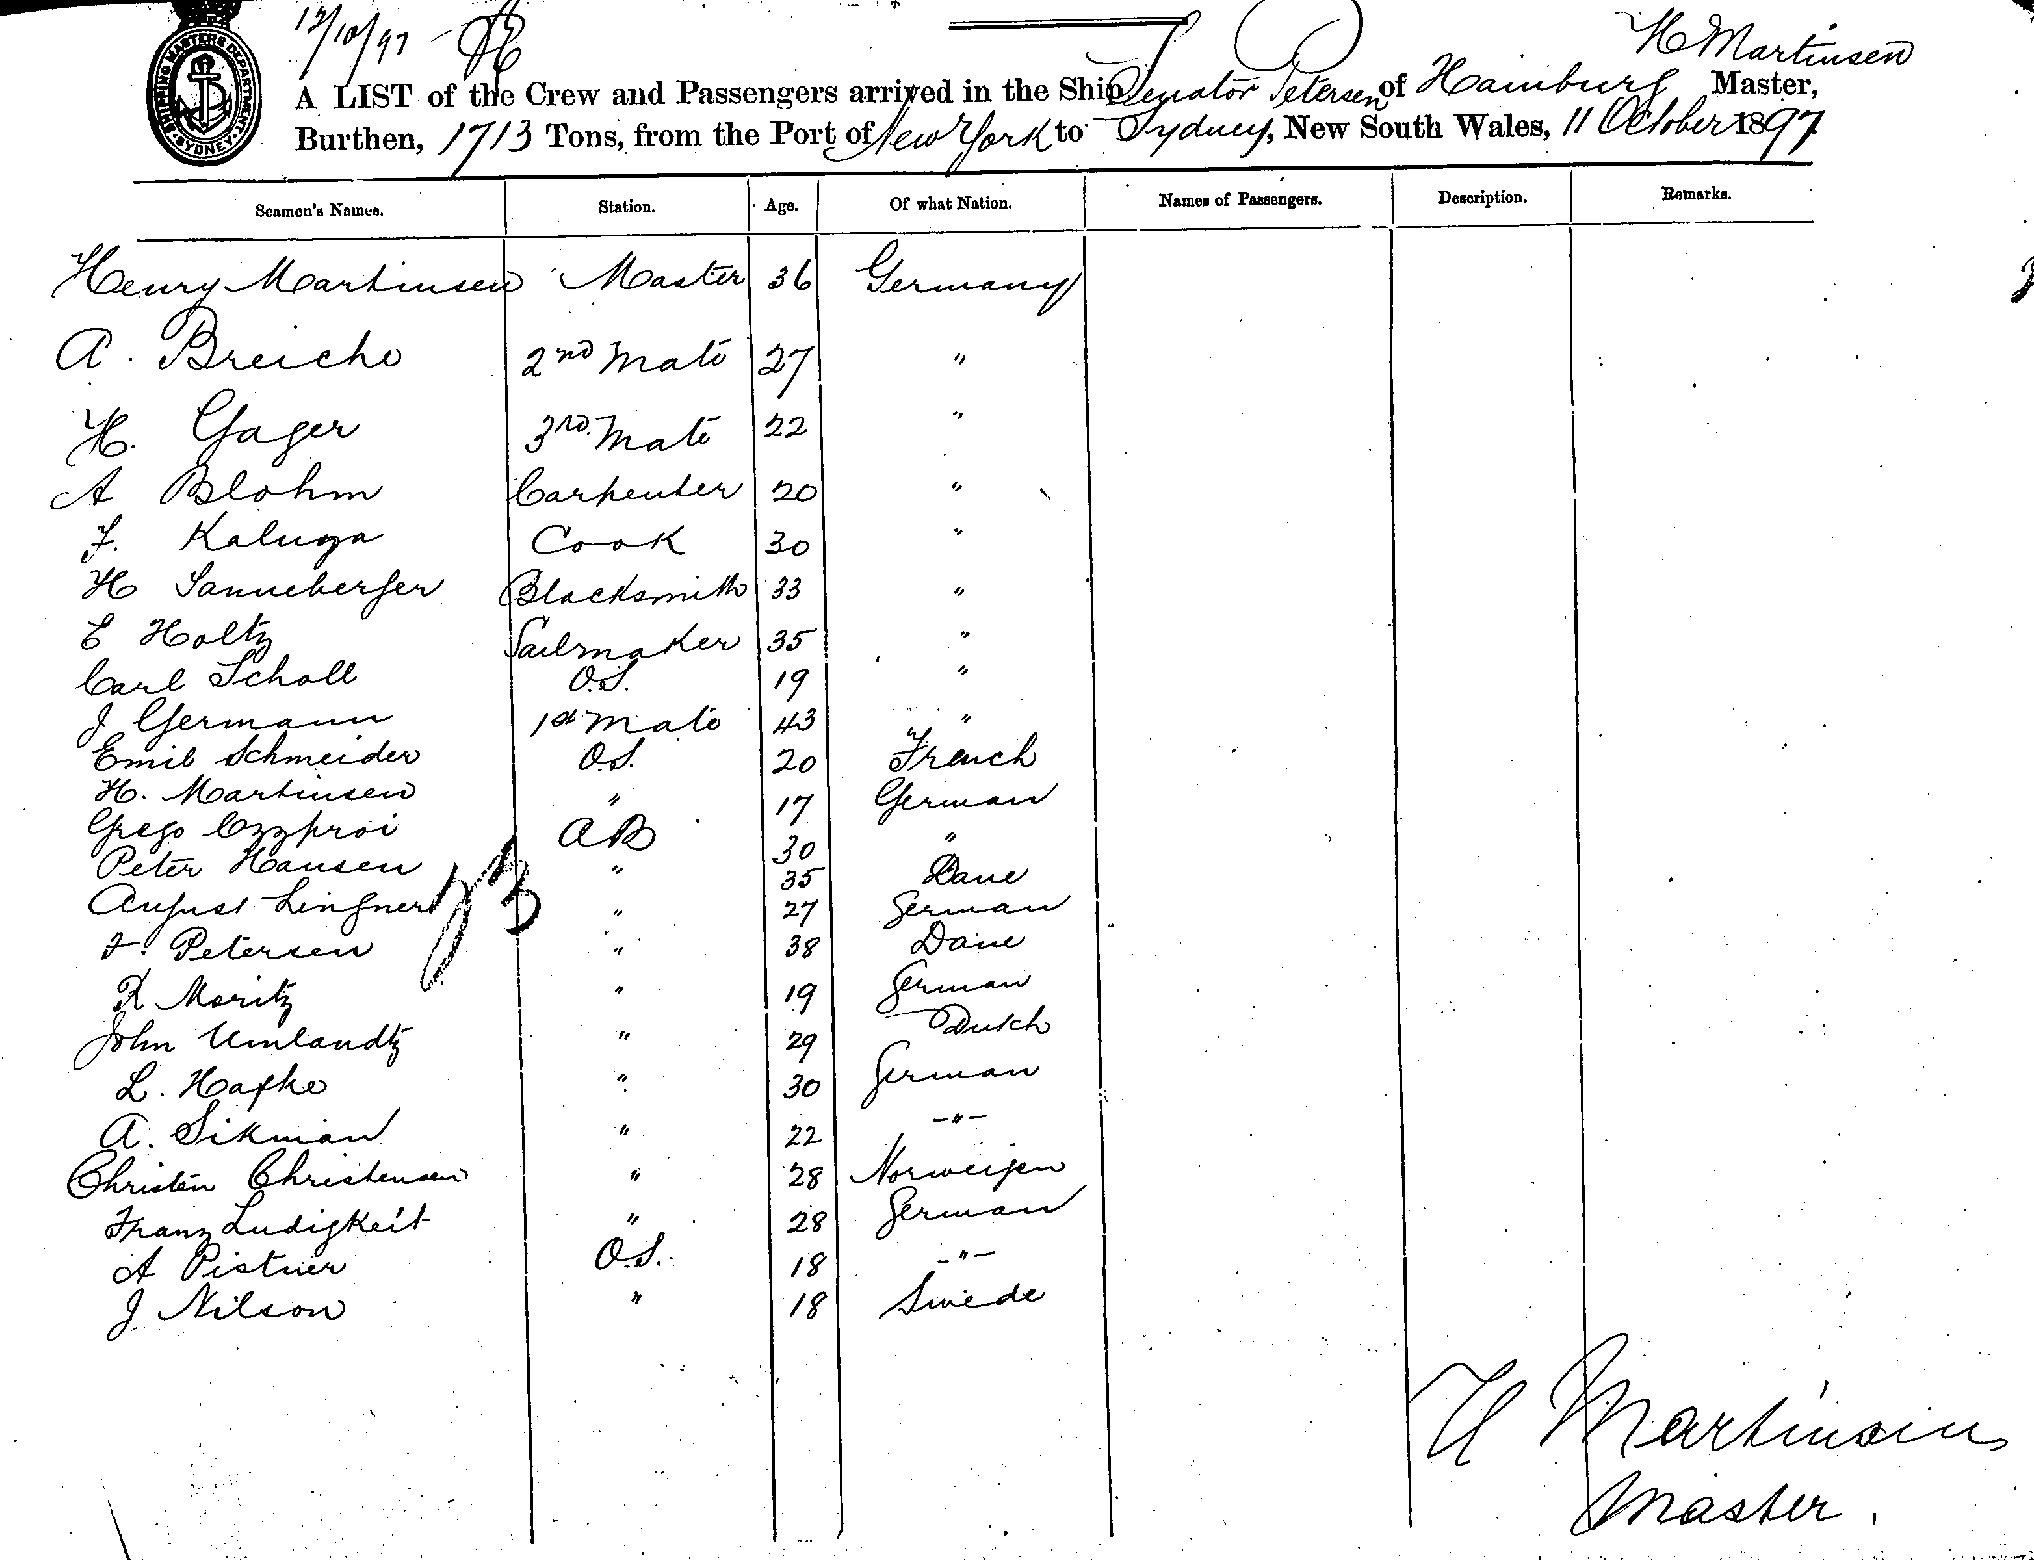 12/10/97
H Martinsen
A LIST of the Crew and Passengers arrived in the Ship Senator Petersen of Hamburg Master,
Burthen, 1713 Tons, from the Port of New York to Sydney, New South Wales, 11 October 1897
SHIPPING MASTERS DEPARTMENT SYDNEY
Seamen's Names. Station. Age. Of what Nation. Names of Passengers. Description. Remarks.
Henry Martinsen Master 36 Germany
A. Breiche 2nd Mate 27 "
H. Gager 3rd Mate 22 "
A Blohm Carpenter 20 "
F. Kaluga Cook 30 "
H Sanneberger Blacksmith 33 "
E Holtz Sailmaker 35 "
Carl Scholl O.S. 19 "
J Germann 1st Mate 43 "
Emil Schmeider O.S. 20 French
H. Martinsen " 17 German
Grego AB 30 "
Peter Hansen " 35 Dane
August Lingner " 27 German
F. Petersen " 38 Dane
R Moritz " 19 German
John Umlandtz " 29 Dutch
L. Hafke " 30 German
A. Sikman " 22 -"-
Christen Christensen " 28 Norweigen
Franz Ludigkeit " 28 German
A Pistner O.S. 18 -"-
J Nilson " 18 Swede
H Martinsen
Master.